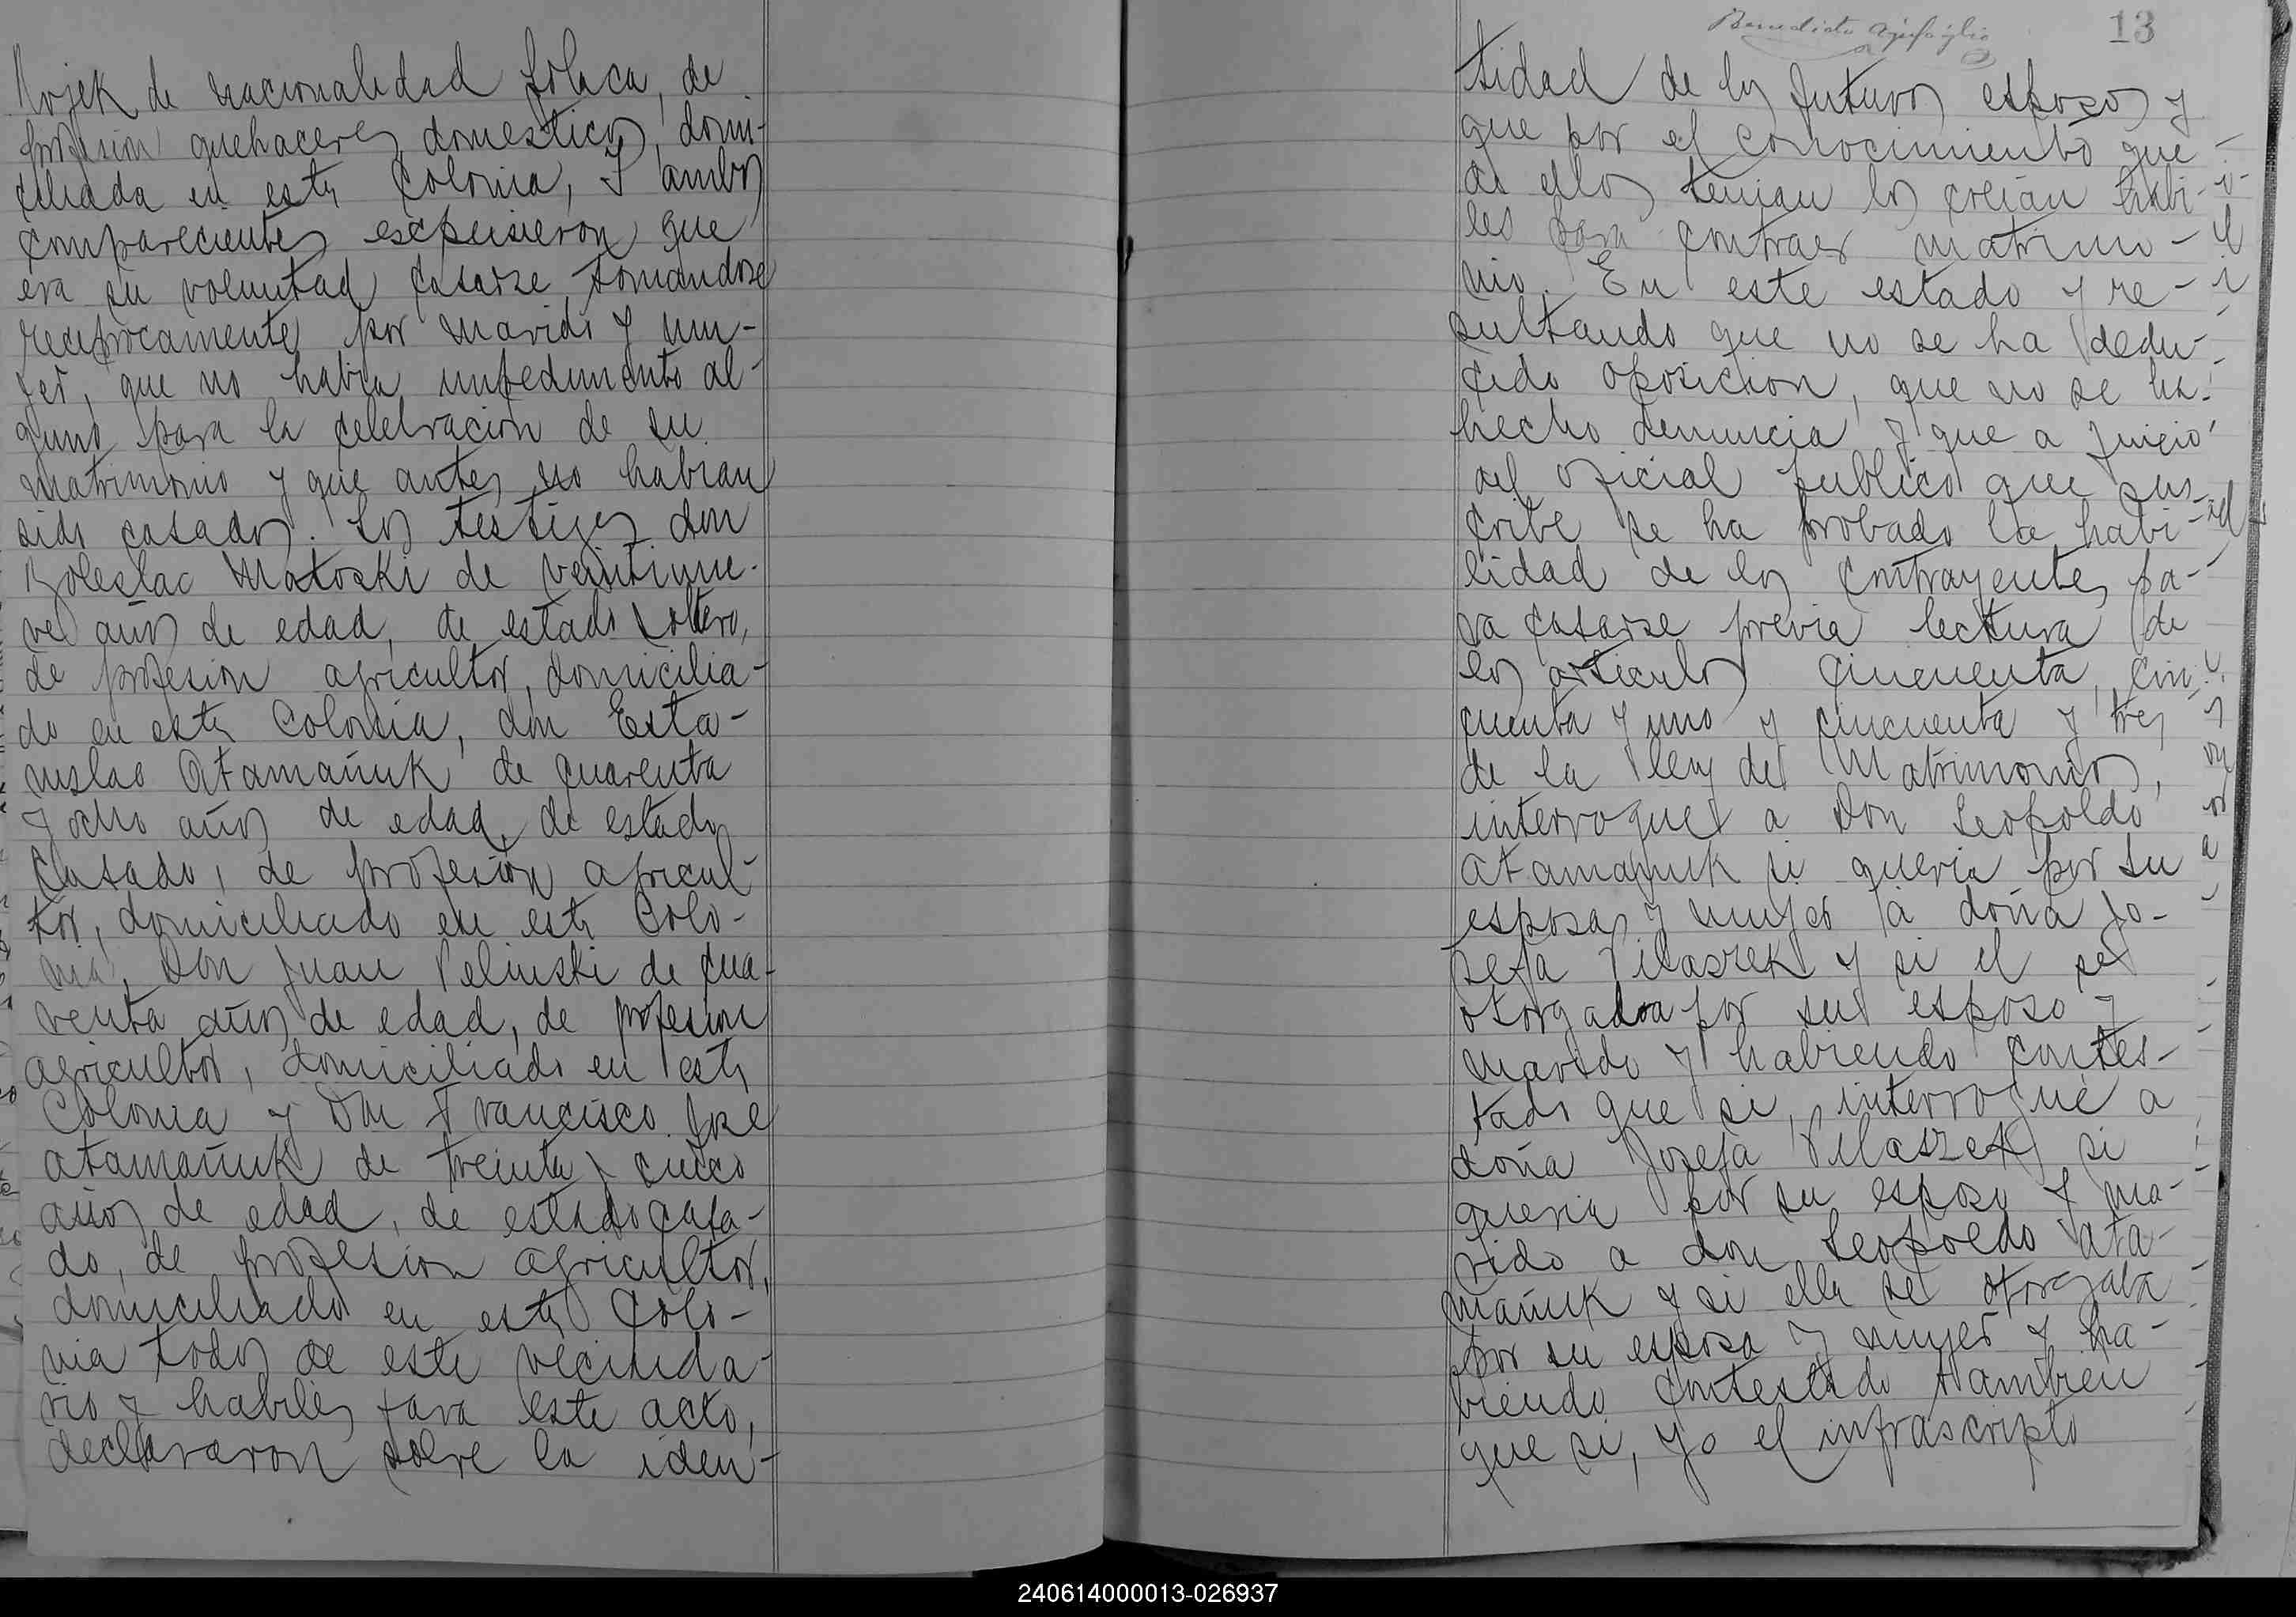 Mojek de nacionalidad Polaca, de
profesion quehaceres domesticos, domi-
ciliada en esta Colonia, Y ambos
comparecientes expusieron que
era su voluntad casarse, tomandose
reciprocamente por marido y mu-
jer, que no habia impedimento al-
guno para la celebracion de su
matrimonio y que antes no habian
sido casados. Los testigos don
Boleslac Matoski de veintinue-
ve años de edad, de estado soltero,
de profesion agricultor, domicilia-
do en esta Colonia, don Esta-
nislao Atamañuk de cuarenta
y ocho años de edad, de estado
Casado, de profesion agricul-
tor, domiciliado en esta Colo-
nia, Don Juan Pelinski de cua-
renta años de edad, de profesion
agricultor, domiciliado en esta
Colonia y Don Francisco José
Atamañuk de treinta y cinco
años de edad, de estado casa-
do, de profesion agricultor,
domiciliado en esta Colo-
nia todos de este vecinda-
rio y habiles para este acto,
declararon sobre la iden-
13
tidad de los futuros esposos y
que por el conocimiento que
de ellos tenian los creian habi-
les para contraer matrimo-
nio. En este estado y re-
sultando que no se ha dedu-
cido oposicion, que no se ha
hecho denuncia y que a juicio
del oficial publico que sus-
cribe se ha probado la habi-
lidad de los contrayentes pa-
ra casarse previa lectura de
los articulos cincuenta, cin-
cuenta y uno y cincuenta y tres
de la ley de Matrimonios,
interroque a Don Leopoldo
Atamañuk si queria por su
esposa y mujer a doña Jo-
sefa Pilaszek y si el se
otorgaba por su esposo y
marido y habiendo contes-
tado que si, interrogué a
doña Josefa Pilaszek si
queria por su esposo y ma-
rido a don Leopoldo Ata-
mañuk y si ella se otorgaba
por su esposa y mujer y ha-
biendo contestado tambien
que si, yo el infrascripto
240614000013-026937